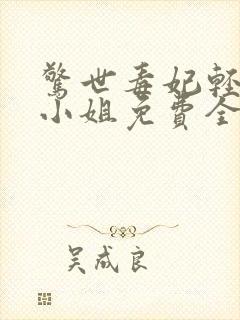 驚世毒妃輕
小姐免費全
吴成良